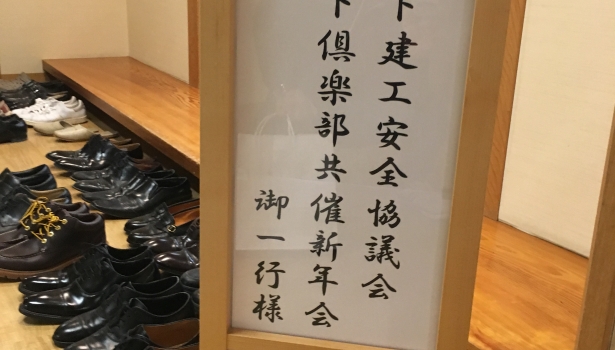 建工安全協議会
倶楽部共催新年会
御一行様